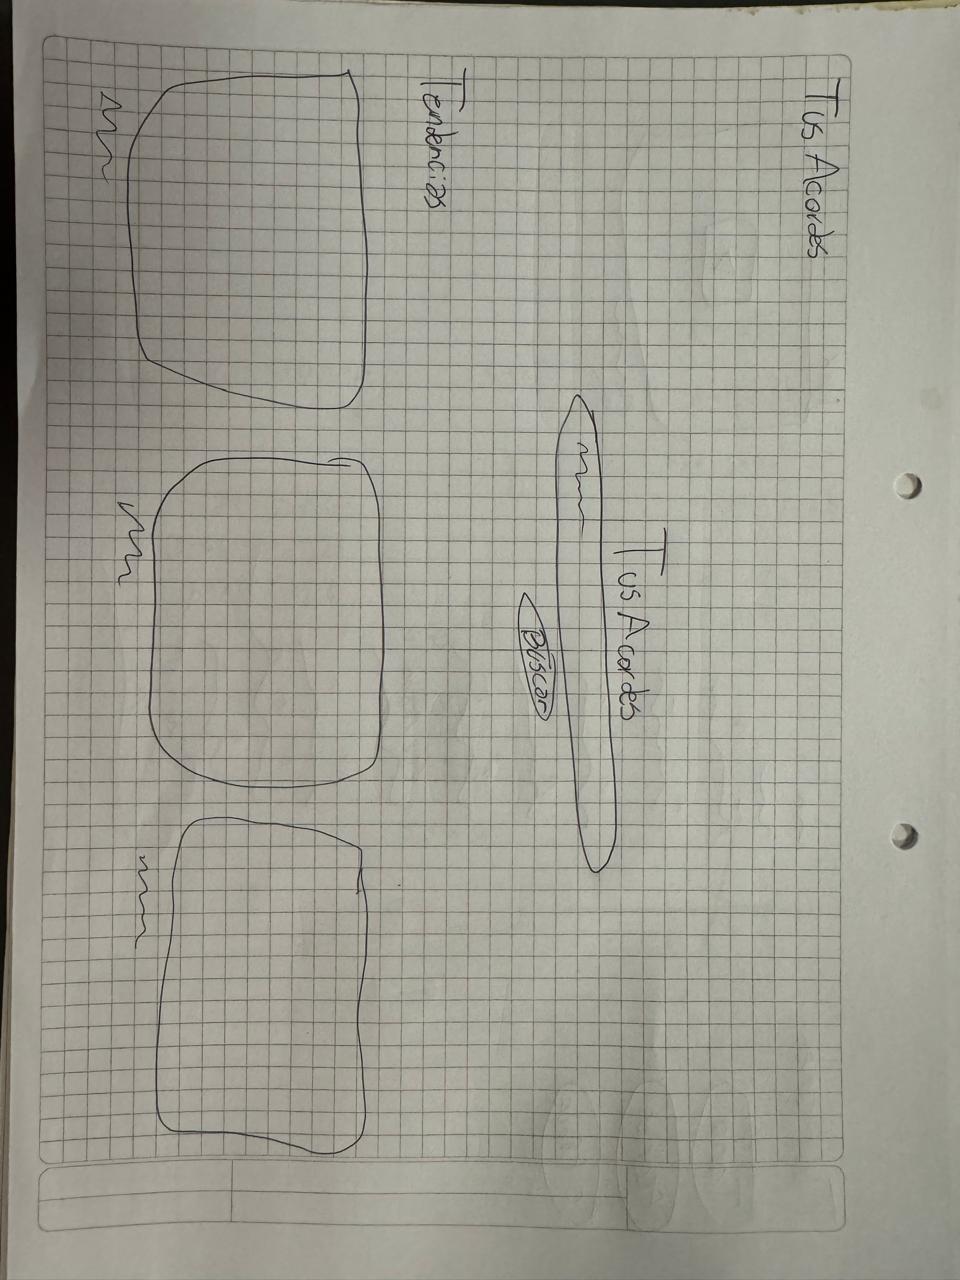 Tus Acordes
Tus Acordes
Buscar
Tendencias